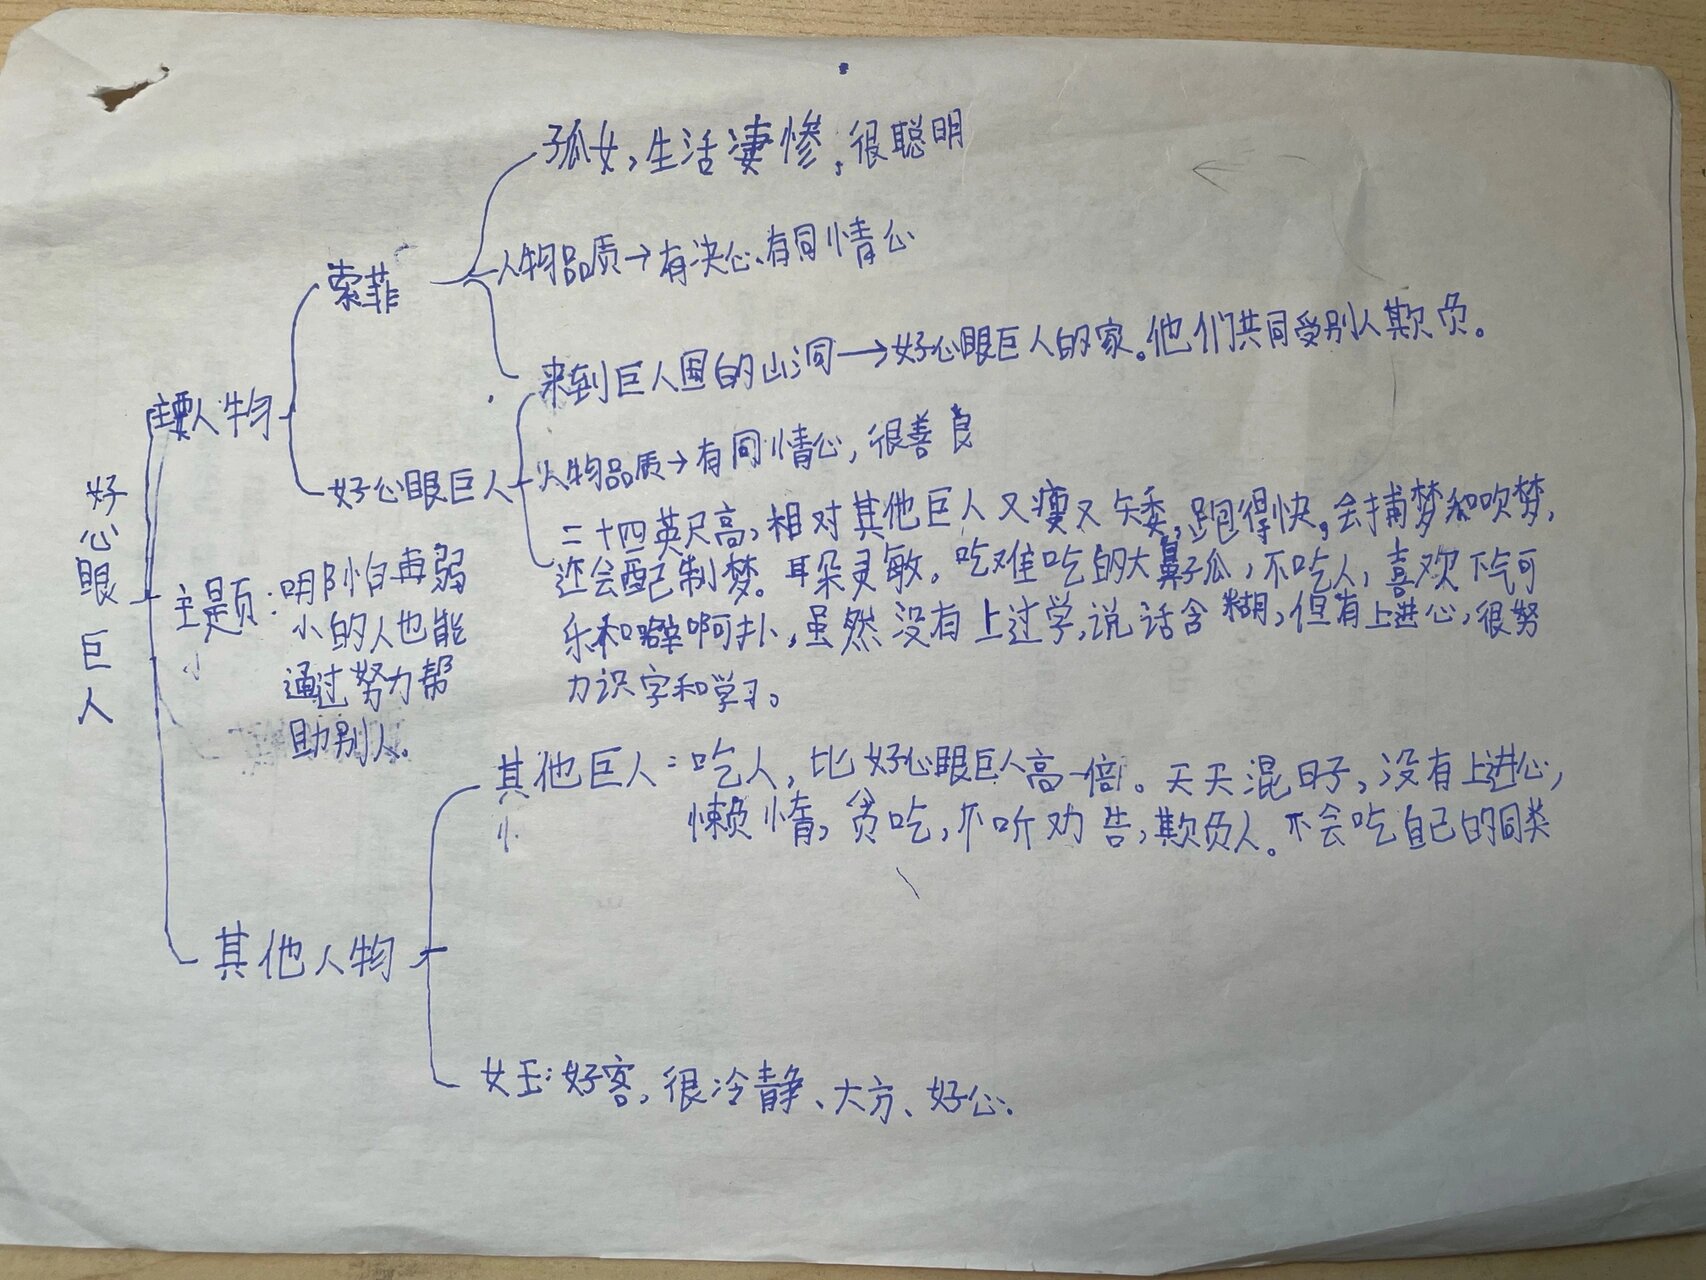 好心眼巨人
主要人物
索菲
孤女，生活凄惨，很聪明
人物品质→有决心、有同情心
来到巨人国的山洞→好心眼巨人的家。他们共同受别人欺负。
好心眼巨人
人物品质→有同情心，很善良
二十四英尺高，相对其他巨人又瘦又矮，跑得快，会捕梦和吹梦，
还会配制梦。耳朵灵敏。吃难吃的大鼻子瓜，不吃人，喜欢下气可
乐和噼啊扑，虽然没有上过学，说话含糊，但有上进心，很努
力识字和学习。
主题：哪怕再弱
小的人也能
通过努力帮
助别人。
其他人物
其他巨人：吃人，比好心眼巨人高一倍。天天混日子，没有上进心，
懒惰，贪吃，不听劝告，欺负人。不会吃自己的同类
女王：好客，很冷静、大方、好心、